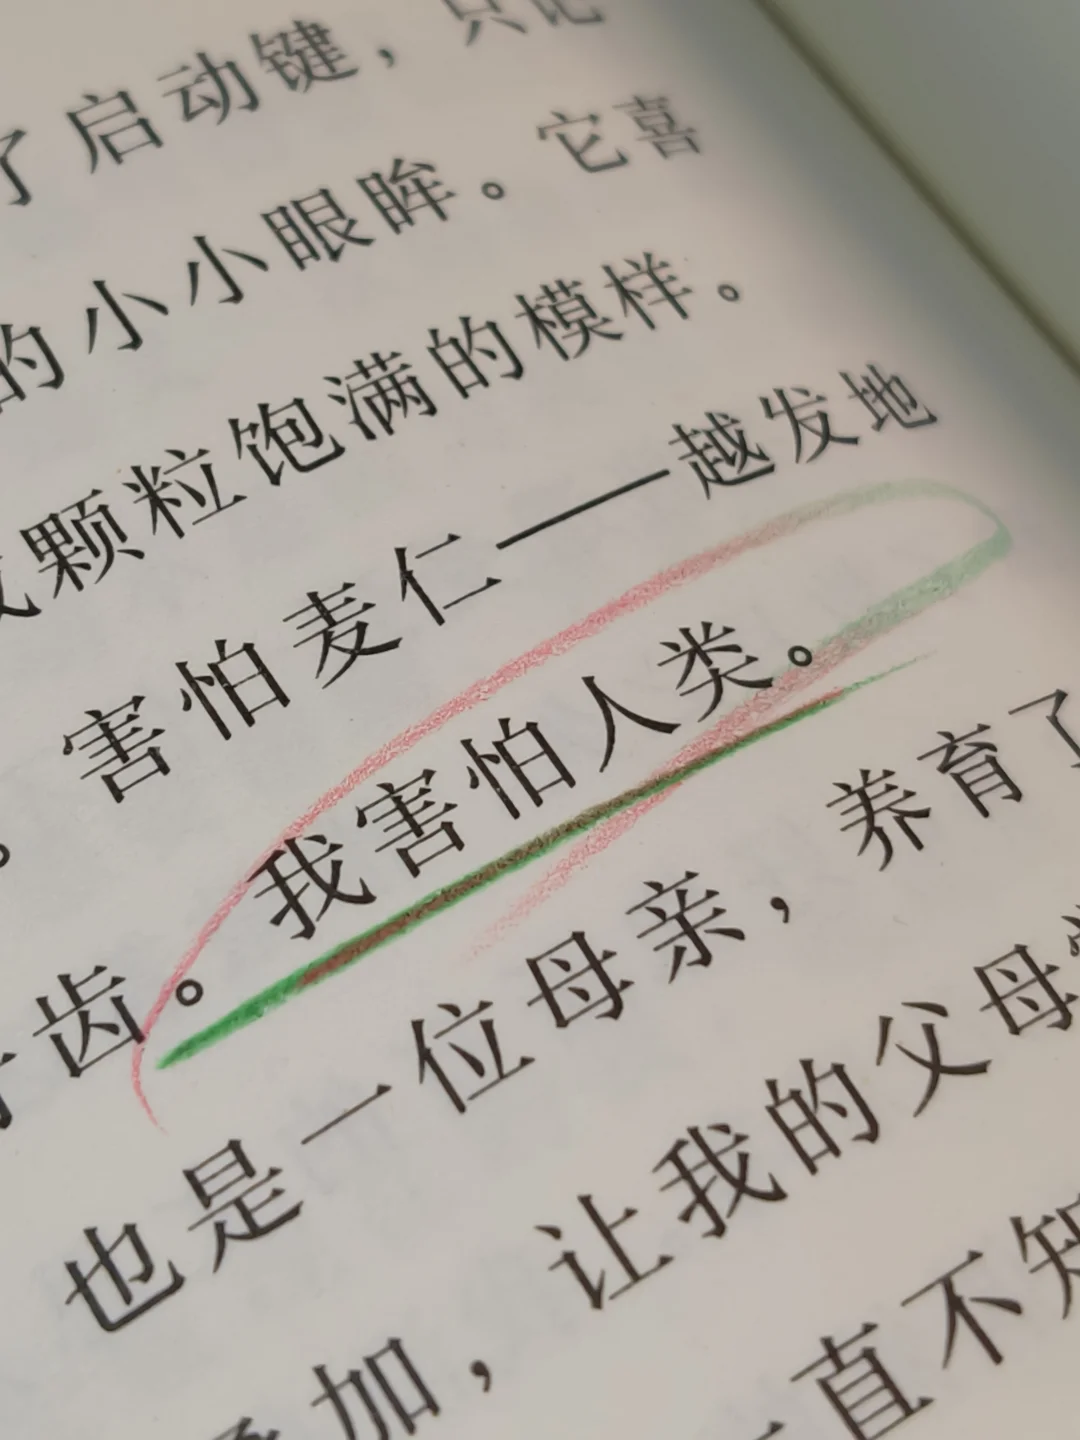 了启动键，只记
的小小眼眸。它喜
颗粒饱满的模样。
害怕麦仁——越发地
齿。我害怕人类。
也是一位母亲，养育了
加，让我的父母
直不知